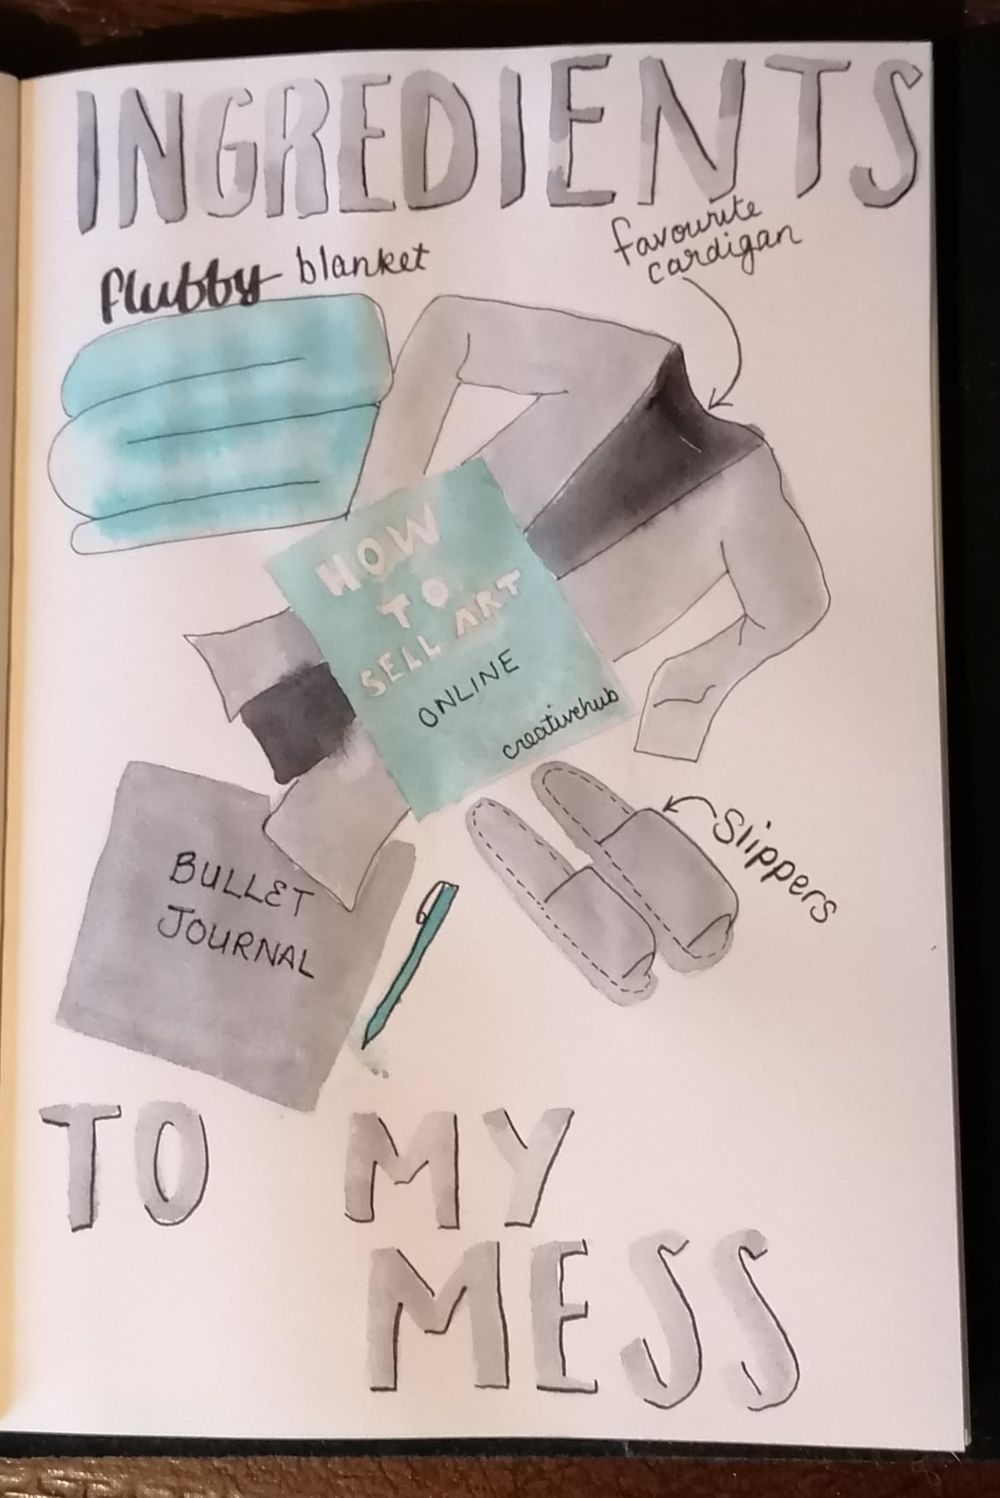 INGREDIENTS
favourite
cardigan
flubby blanket
HOW
TO
SELL ART
ONLINE
creativehub
Slippers
BULLET
JOURNAL
TO MY
MESS